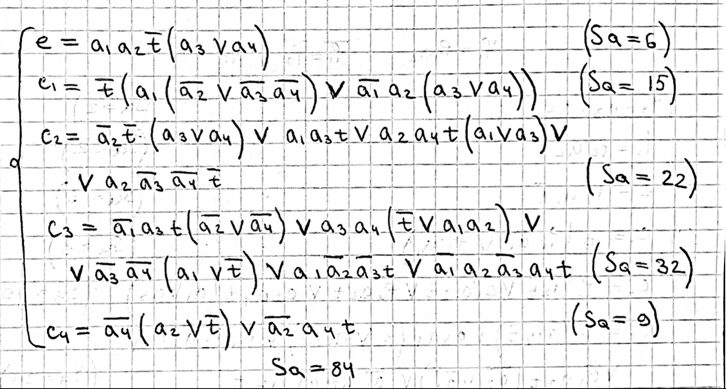 e = a₁ a₂ t̅ (a₃ ∨ a₄) (Sa = 6)
c₁ = t̅ (a₁ (a̅₂ ∨ a̅₃ a̅₄) ∨ a̅₁ a₂ (a₃ ∨ a₄)) (Sa = 15)
c₂ = a̅₂ t̅ · (a₃ ∨ a₄) ∨ a₁ a₃ t ∨ a₂ a₄ t (a₁ ∨ a₃) ∨
∨ a₂ a̅₃ a̅₄ t̅ (Sa = 22)
c₃ = a̅₁ a₃ t (a̅₂ ∨ a̅₄) ∨ a₃ a₄ (t̅ ∨ a₁ a₂) ∨
∨ a̅₃ a̅₄ (a₁ ∨ t̅) ∨ a₁ a̅₂ a̅₃ t ∨ a̅₁ a₂ a̅₃ a₄ t (Sa = 32)
c₄ = a̅₄ (a₂ ∨ t̅) ∨ a̅₂ a₄ t (Sa = 9)
Sa = 84